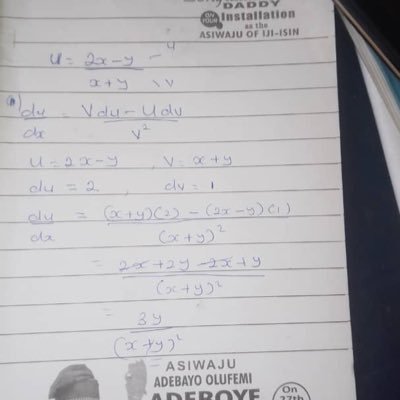 DADDY
ON YOUR Installation
as the
ASIWAJU OF IJI-ISIN
U = 2x-y - u
x+y \ v
a) du = Vdu - Udv
dx v²
U = 2x-y , V = x+y
du = 2 , dv = 1
du = (x+y)(2) - (2x-y)(1)
dx (x+y)²
= 2x+2y-2x+y
(x+y)²
= 3y
(x+y)²
ASIWAJU
ADEBAYO OLUFEMI
ADEBOYE
On
27th